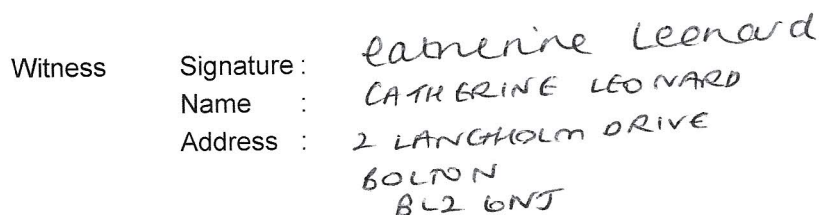 Witness Signature : Catherine Leonard
Name : CATHERINE LEONARD
Address : 2 LANGHOLM DRIVE
BOLTON
BL2 6NJ